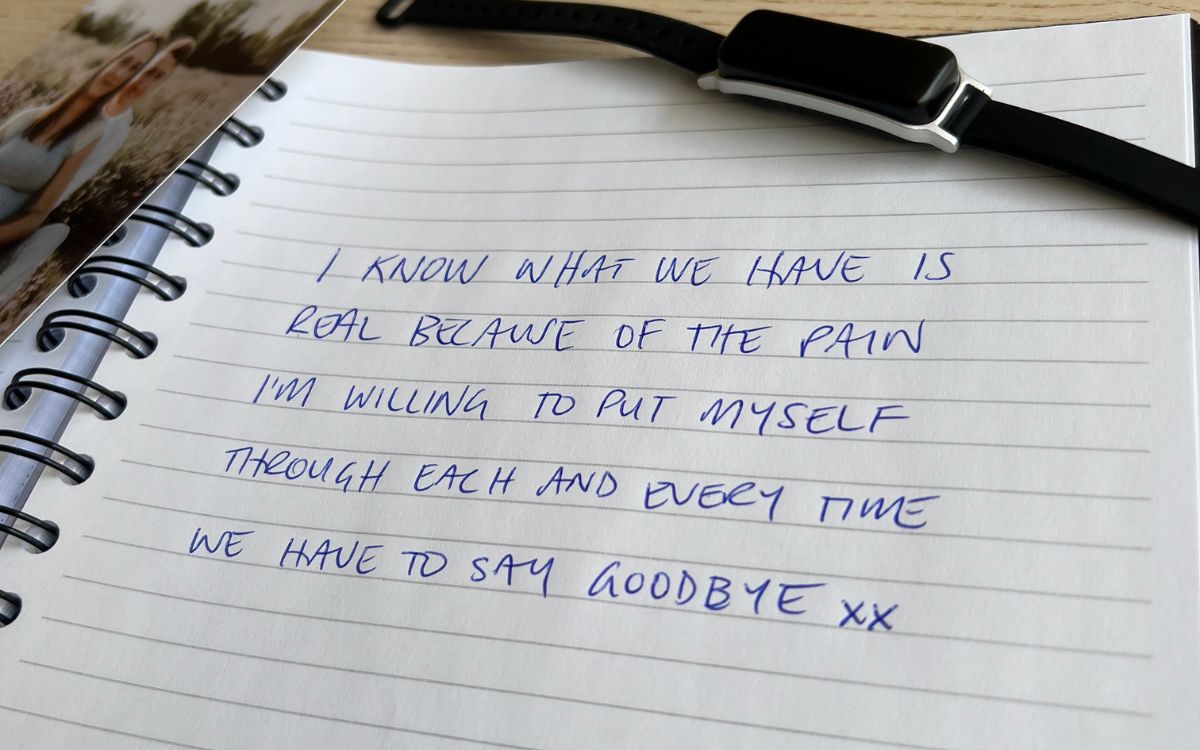 I KNOW WHAT WE HAVE IS
REAL BECAUSE OF THE PAIN
I'M WILLING TO PUT MYSELF
THROUGH EACH AND EVERY TIME
WE HAVE TO SAY GOODBYE xx